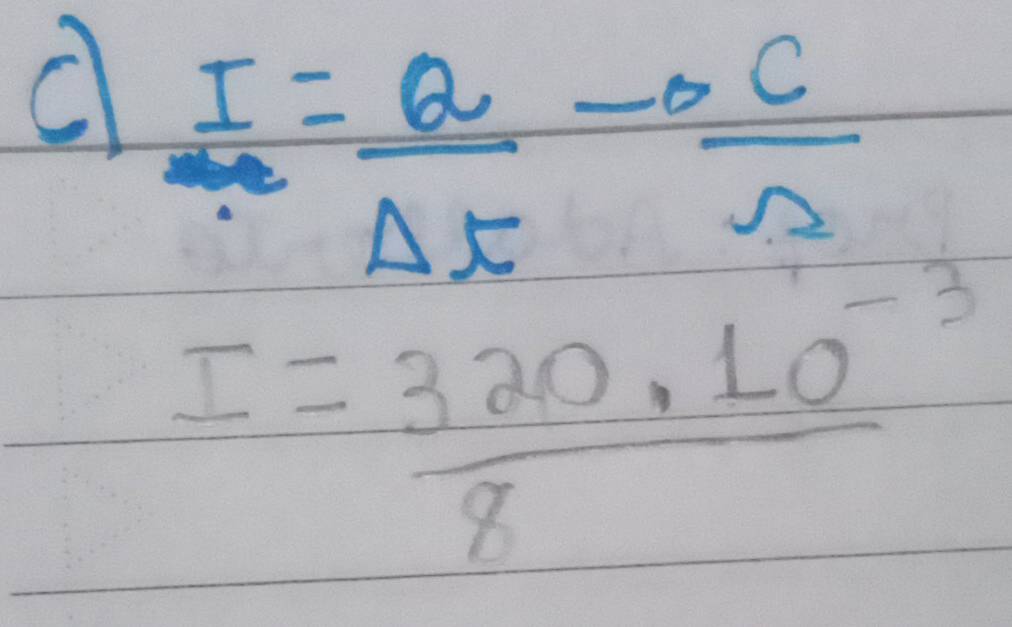 C) I = Q / Δt → C / Ω
I = 320 . 10^-3 / 8